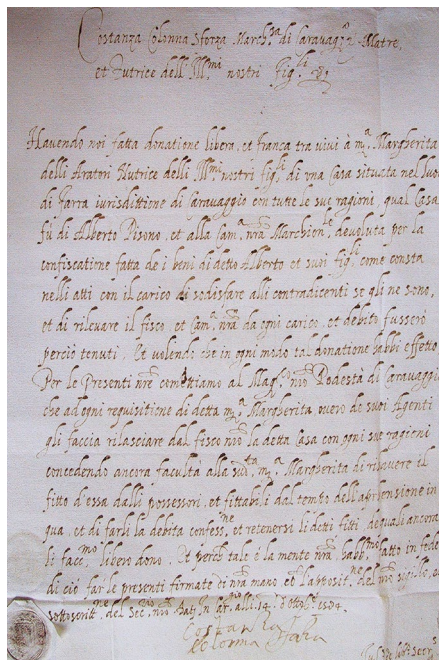 Costanza Colonna Sforza March.sa di Caravag.o Matre,
et Tutrice delli Ill.mi nostri fig.li &c
Havendo noi fatta donatione libera, et franca tra vivi à m.a Margherita
delli Aratori Nutrice delli Ill.mi nostri fig.li di una Casa situata nel luo
di Farra iurisdittione di Caravaggio con tutte le sue ragioni, qual Casa
fù di Alberto Pisono, et alla Cam.a nrã Marchion.le devoluta per la
confiscatione fatta de i beni di detto Alberto et suoi fig.li come consta
nelli atti con il carico di sodisfare alli contradicenti se gli ne sono,
et di rilevare il fisco, et Cam.a nrã da ogni carico, et debito fussero
perciò tenuti, Et volendo che in ogni modo tal donatione habbi effetto
Per le Presenti nrẽ comettiamo al Mag.co nrõ Podestà di Caravaggi
che ad ogni requisitione di detta m.a Margherita overo de suoi Agenti
gli faccia rilasciare dal fisco nrõ la detta Casa con ogni sue ragioni
concedendo ancora facultà alla sud.ta m.a Margherita di rihavere il
fitto d'essa dalli possessori, et fittabili dal tempo dell'aprensione in
qua, et di farli la debita confess.ne et retenersi li detti fitti, de quali ancora
li facc.mo libero dono, Et perche tale è la mente nrã, habb.mo fatto in fede
di ciò far le presenti firmate di nrã mano cõ l'apposit.ne del nrõ sigillo, et
sottoscritt.ne del Sec.rio nrõ Dat. in alli 14 d'ottob.e 1584.
Costanza
Colonna Sforza